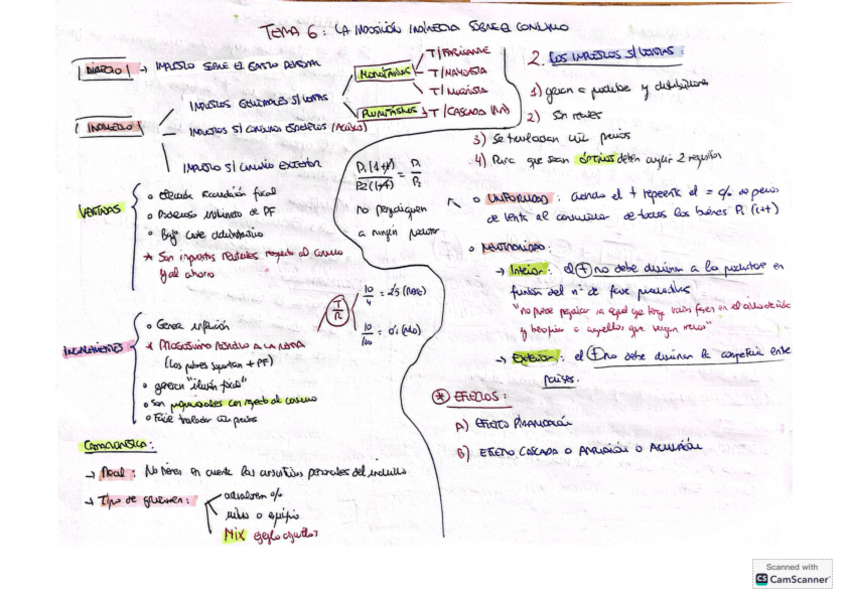 TEMA 6: LA IMPOSICIÓN INDIRECTA SOBRE EL CONSUMO
DIRECTO → IMPUESTO SOBRE EL GASTO PERSONAL
INDIRECTO
IMPUESTOS GENERALES S/ VENTAS
IMPUESTOS S/ CONSUMOS ESPECÍFICOS (Accisas)
IMPUESTO S/ COMERCIO EXTERIOR
MONOFÁSICOS
T/FABRICANTE
T/MAYORISTA
T/MINORISTA
PLURIFÁSICOS → T/CASCADA (IVA)
VENTAJAS
• elevada recaudación fiscal
• Poderoso instrumento de PF
• Bajo coste administrativo
* Son impuestos neutrales respecto al consumo
y al ahorro
P1 (1+t) / P2 (1+t) = P1 / P2
no perjudiquen
a ningún productor
INCONVENIENTES
• Genera inflación
* REGRESIVIDAD RESPECTO A LA RENTA
(Los pobres soportan + PF)
• generan "ilusión fiscal"
• Son proporcionales con respecto al consumo
• Fácil traslación vía precios
T/R
10/4 = 2'5 (POBRE)
10/100 = 0'1 (RICO)
Características:
→ Real: No tienen en cuenta las circunstancias personales del individuo
→ Tipo de gravamen:
ad valorem %
Mix
2. LOS IMPUESTOS S/ VENTAS:
1) gravan a productores y distribuidores
2) Son reales
3) Se trasladan vía precios
4) Para que sean óptimos deben cumplir 2 requisitos
• UNIFORMIDAD: cuando el t represente el = % de precio
de venta al consumidor de todos los bienes Pi (1+t)
• NEUTRALIDAD:
→ Interior: el t no debe discriminar a los productos en
función del nº de fases
"no puede perjudicar a aquel que tenga varias fases en el
y beneficiar a aquellos que tengan menos"
→ Exterior: el t no debe discriminar la competencia entre
países.
* EFECTOS:
A) EFECTO PIRAMIDACIÓN
B) EFECTO CASCADA O O ACUMULACIÓN
Scanned with
CS CamScanner